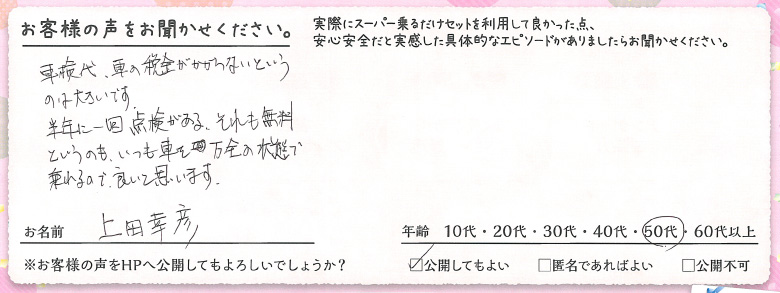 お客様の声をお聞かせください。
車検代、車の税金がかからないという
のは大きいです。
半年に一回点検がある、それも無料
というのも、いつも車を万全の状態で
乗れるので、良いと思います。
お名前 上田幸彦
※お客様の声をHPへ公開してもよろしいでしょうか？
実際にスーパー乗るだけセットを利用して良かった点、
安心安全だと実感した具体的なエピソードがありましたらお聞かせください。
年齢 10代・20代・30代・40代・50代・60代以上
☑公開してもよい □匿名であればよい □公開不可